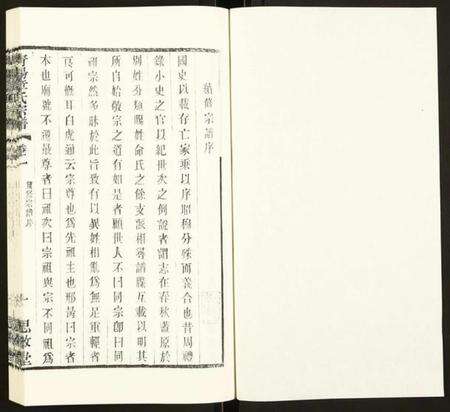 續修宗譜序
國史以載存亡家乘以序昭穆分殊而義合也昔周禮
錄小史之官以紀世次之例說者謂志在春秋蓋原於
別姓分類賜姓命氏之條支派相尋譜牒互載以明其
所自始敬宗之道有如是者顧世人不曰同宗卽曰同
祖宗然多昧於此旨致有以異姓相亂為無足重輕者
良可慨耳白虎通云宗尊也為先祖主也邢昺曰宗者
本也廟號不遷最尊者曰祖次曰宗祖與宗不同祖為
氏宗譜
卷一
續修宗譜序
一